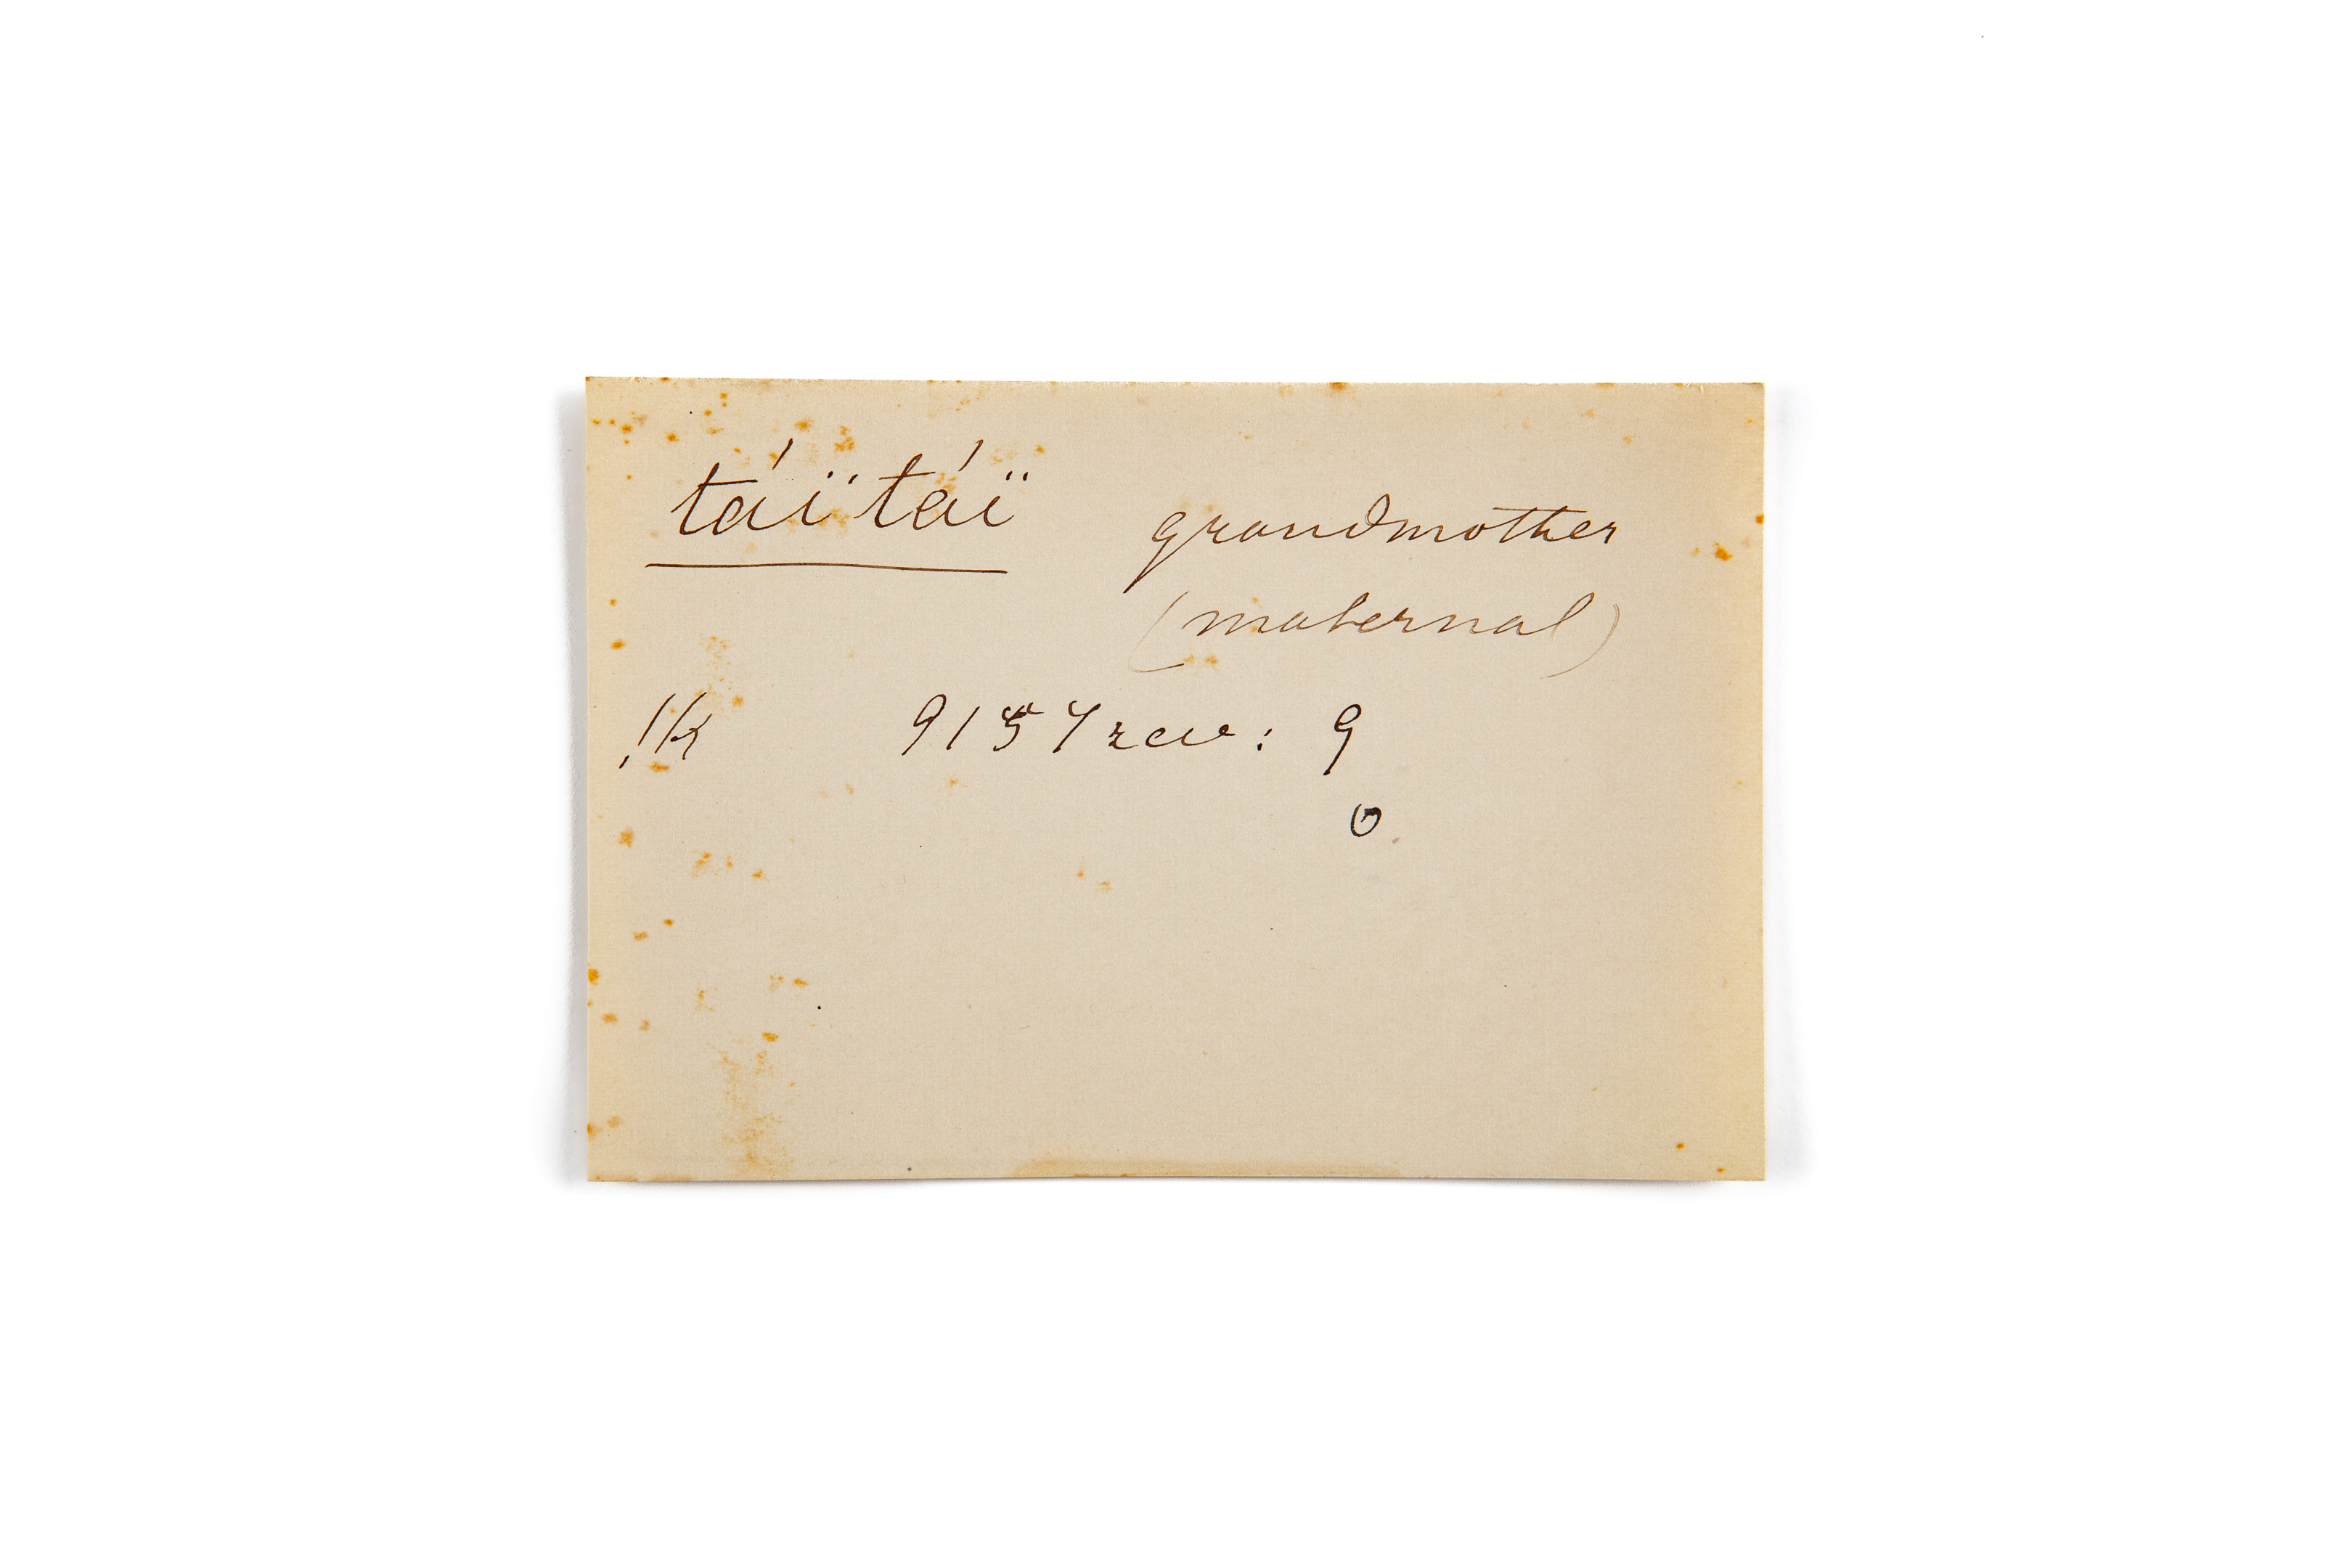 táï táï grandmother
(maternal)
!k 9157 rev: 9
0